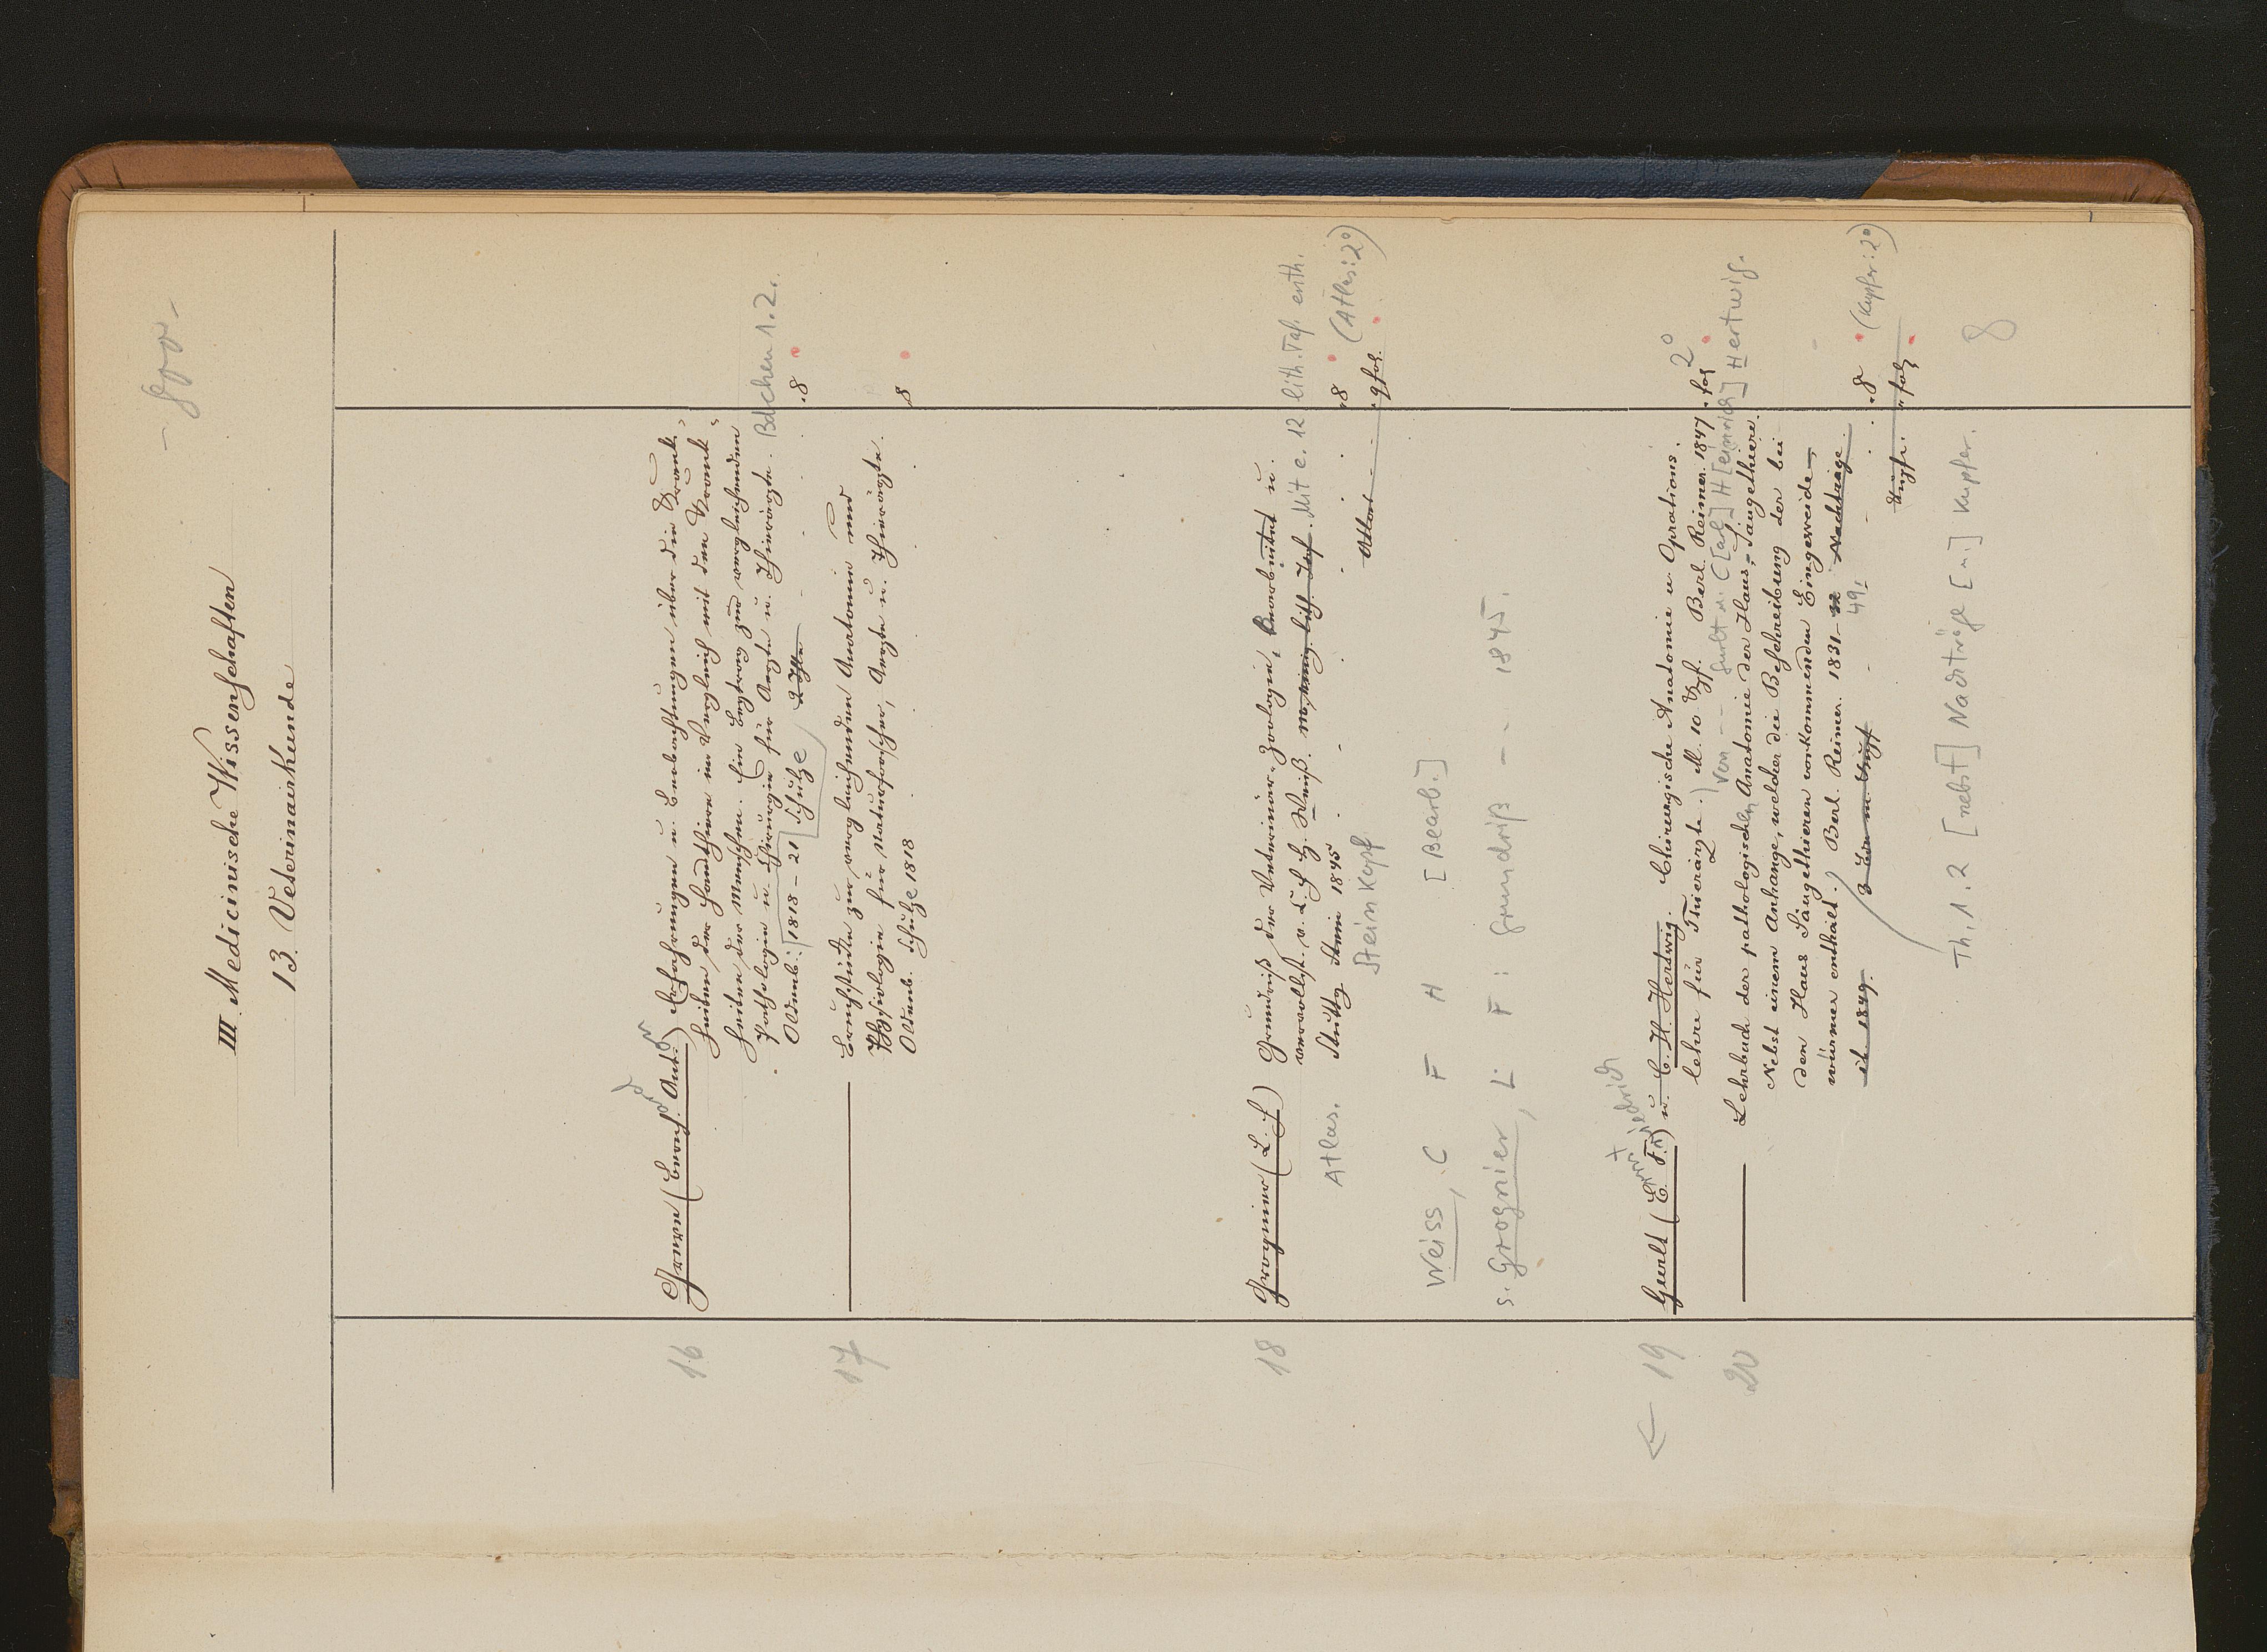 III. Medicinische Wissenschaften
13. Veterinairkunde
16
Greve (Bernh. Ant.) Erfahrungen u. Beobachtungen über die Krank-
heiten der Hausthiere im Vergleich mit den Krank-
heiten der Menschen. Ein Beytrag zur vergleichenden
Pathologie u. Chirurgie für Aerzte u. Thierärzte. Bdchen 1.2.
Oldenb: 1818-21 Schulze 2 Thle 8
17
Bruchstücke zur vergleichenden Anatomie und
Physiologie für Naturforscher, Aerzte u. Thierärzte.
Oldenb. Schulze 1818 8
18
Grognier (L. F) Grundriß der Veterinär-Zoologie, bearbeitet u.
vervollst. v. C. F H. Weiß. m. einig. lith. Taf. Mit e. 12 lith. Taf. enth.
Atlas. Stuttg Stein 1845 8 (Atlas: 2°)
Steinkopf Atlas qfol.
Weiss, C F H [Bearb.]
s. Grognier, L. F: Grundriß -- 1845.
19
Gurlt (E. F.) u. C. H. Hertwig. Chirurgische Anatomie u. Oprations.
Ernst Friedrich
lehre für Thierärzte.) M. 10 Kpf. Berl. Reimer. 1847. fol 2°
Von -- Gurlt u. C[arl] H[einrich] Hertwig.
20
Lehrbuch der pathologischen Anatomie der Haus-Säugethiere.
Nebst einem Anhange, welcher die Beschreibung der bei
den Haus Säugethieren vorkommenden Eingeweide-
würmer enthält.) Berl. Reimer. 1831- Nachträge.
49!
ib. 1849. 8 (Kupfer: 2°)
Kupfr. fol
Th. 1. 2 [nebst] Nachträge [u.] Kupfer.
8